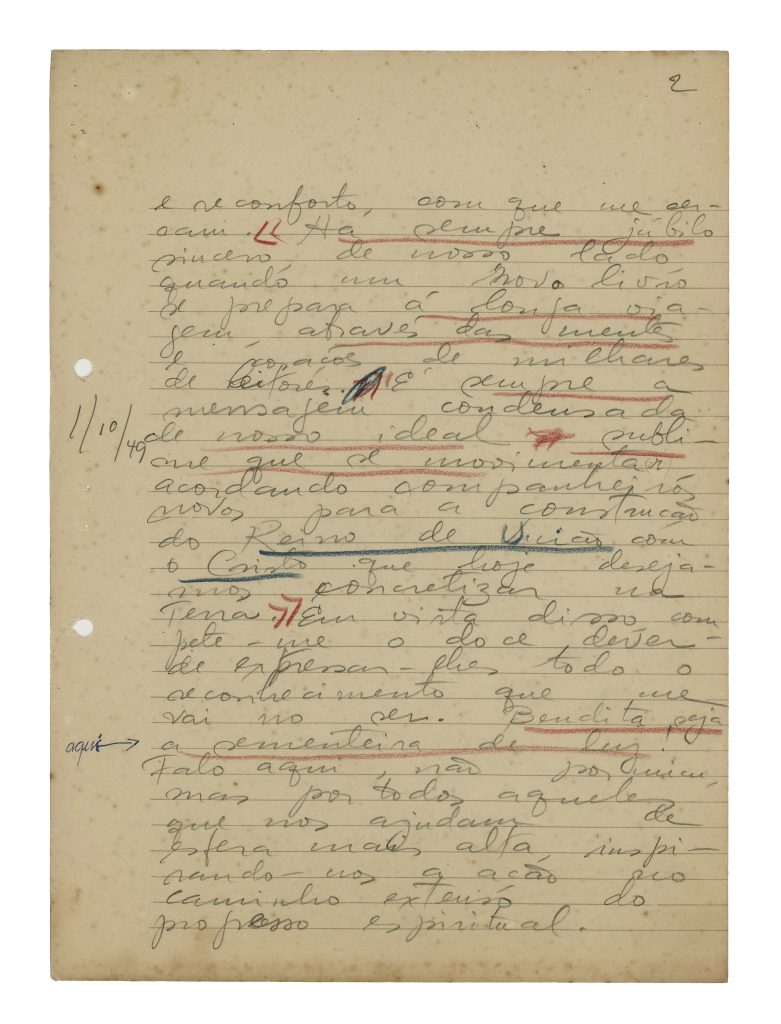 2
e reconforto, com que me cer-
cam. « Ha sempre júbilo
sincero, de nosso lado
quando um novo livro
se prepara á longa via-
gem através das mentes
e corações de milhares
de leitores. É sempre a
mensagem condensada
1/10/49 de nosso ideal subli-
me que se movimenta(r)
acordando companheiros
novos para a construcão
do Reino de União com
o Cristo que hoje deseja-
mos concretizar na
Terra. » Em vista disso com
pete-me o doce dever-
de expressar-lhes todo o
reconhecimento que me
vai no ser. Bendita seja
aqui → a sementeira de luz!
Falo aqui, não por mim,
mas por todos aqueles
que nos ajudam de
esfera mais alta, inspi-
rando-nos a acão no
caminho extenso do
progresso espiritual.